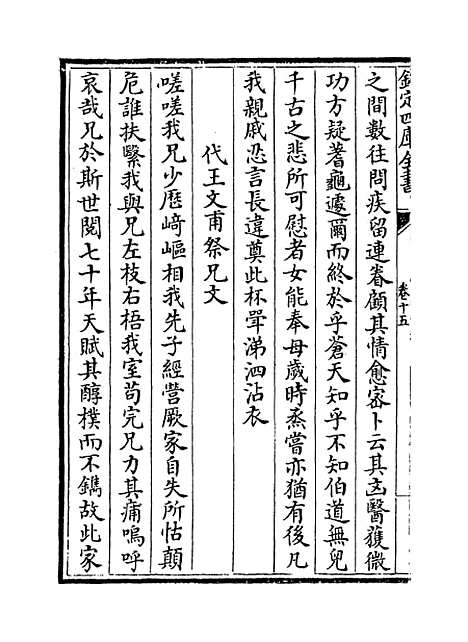 欽定四庫全書
卷十五
之間數往問疾留連眷顧其情愈宻卜云其𠮷醫獲微
功方疑蓍龜遽爾而終於乎蒼天知乎不知伯道無兒
千古之悲所可慰者女能奉母歲時烝嘗亦猶有後凡
我親戚忍言長違奠此杯斝涕泗沾衣
代王文甫祭兄文
嗟嗟我兄少歴﨑嶇相我先子經營厥家自失所怙顛
危誰扶繄我與兄左枝右梧我室茍完兄力其痡嗚呼
哀哉兄於斯世閲七十年天賦其醇樸而不鐫故此家